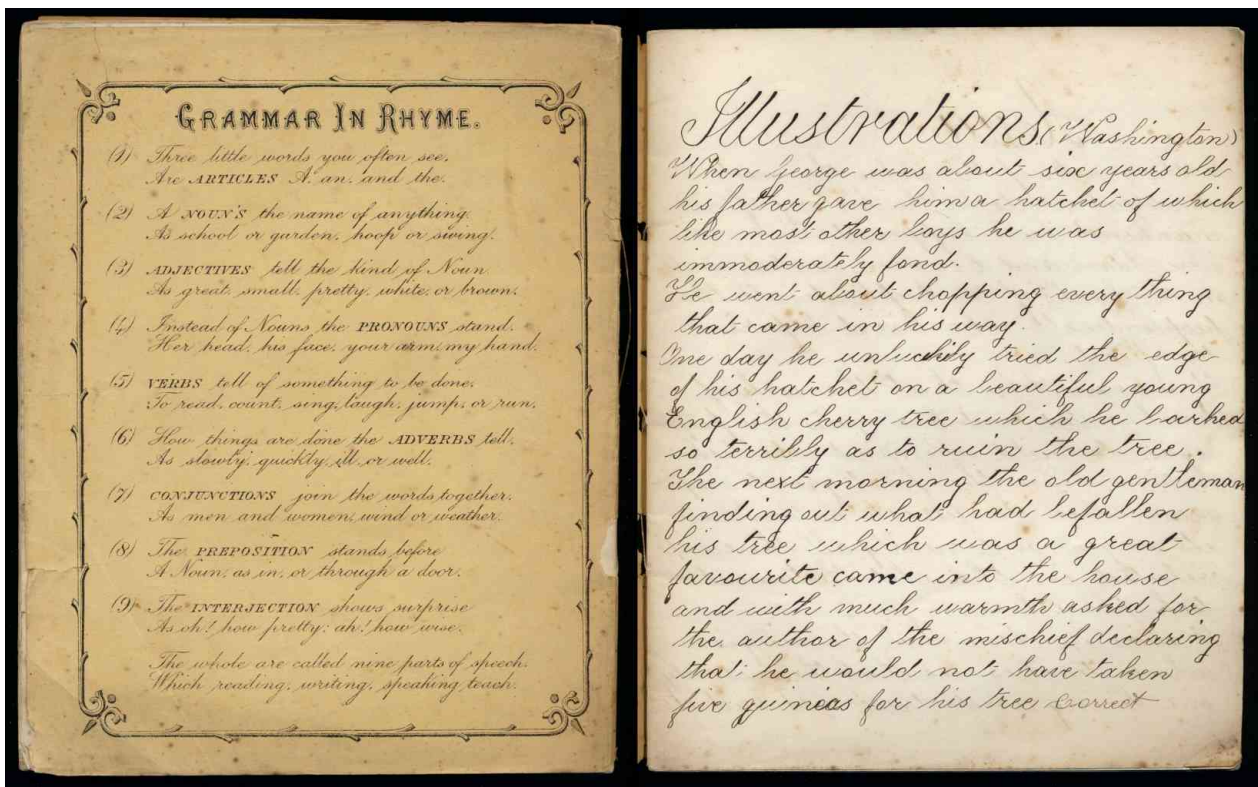 GRAMMAR IN RHYME.
(1) Three little words you often see.
Are ARTICLES A. an. and the.
(2) A NOUN'S the name of anything.
As school or garden, hoop or swing.
(3) ADJECTIVES tell the kind of Noun
As great, small, pretty, white, or brown.
(4) Instead of Nouns the PRONOUNS stand.
Her head, his face, your arm, my hand.
(5) VERBS tell of something to be done.
To read, count, sing, laugh, jump, or run.
(6) How things are done the ADVERBS tell.
As slowly, quickly, ill or well.
(7) CONJUNCTIONS join the words together.
As men and women, wind or weather.
(8) The PREPOSITION stands before
A Noun, as in, or through a door.
(9) The INTERJECTION shows surprise
As oh! how pretty; ah! how wise.
The whole are called nine parts of speech.
Which reading, writing, speaking teach.
Illustrations (Washington)
When George was about six years old
his father gave him a hatchet of which
like most other boys he was
immoderately fond.
He went about chopping every thing
that came in his way.
One day he unluckily tried the edge
of his hatchet on a beautiful young
English cherry tree which he barked
so terribly as to ruin the tree.
The next morning the old gentleman
finding out what had befallen
his tree which was a great
favourite came into the house
and with much warmth asked for
the author of the mischief declaring
that he would not have taken
five guineas for his tree Correct